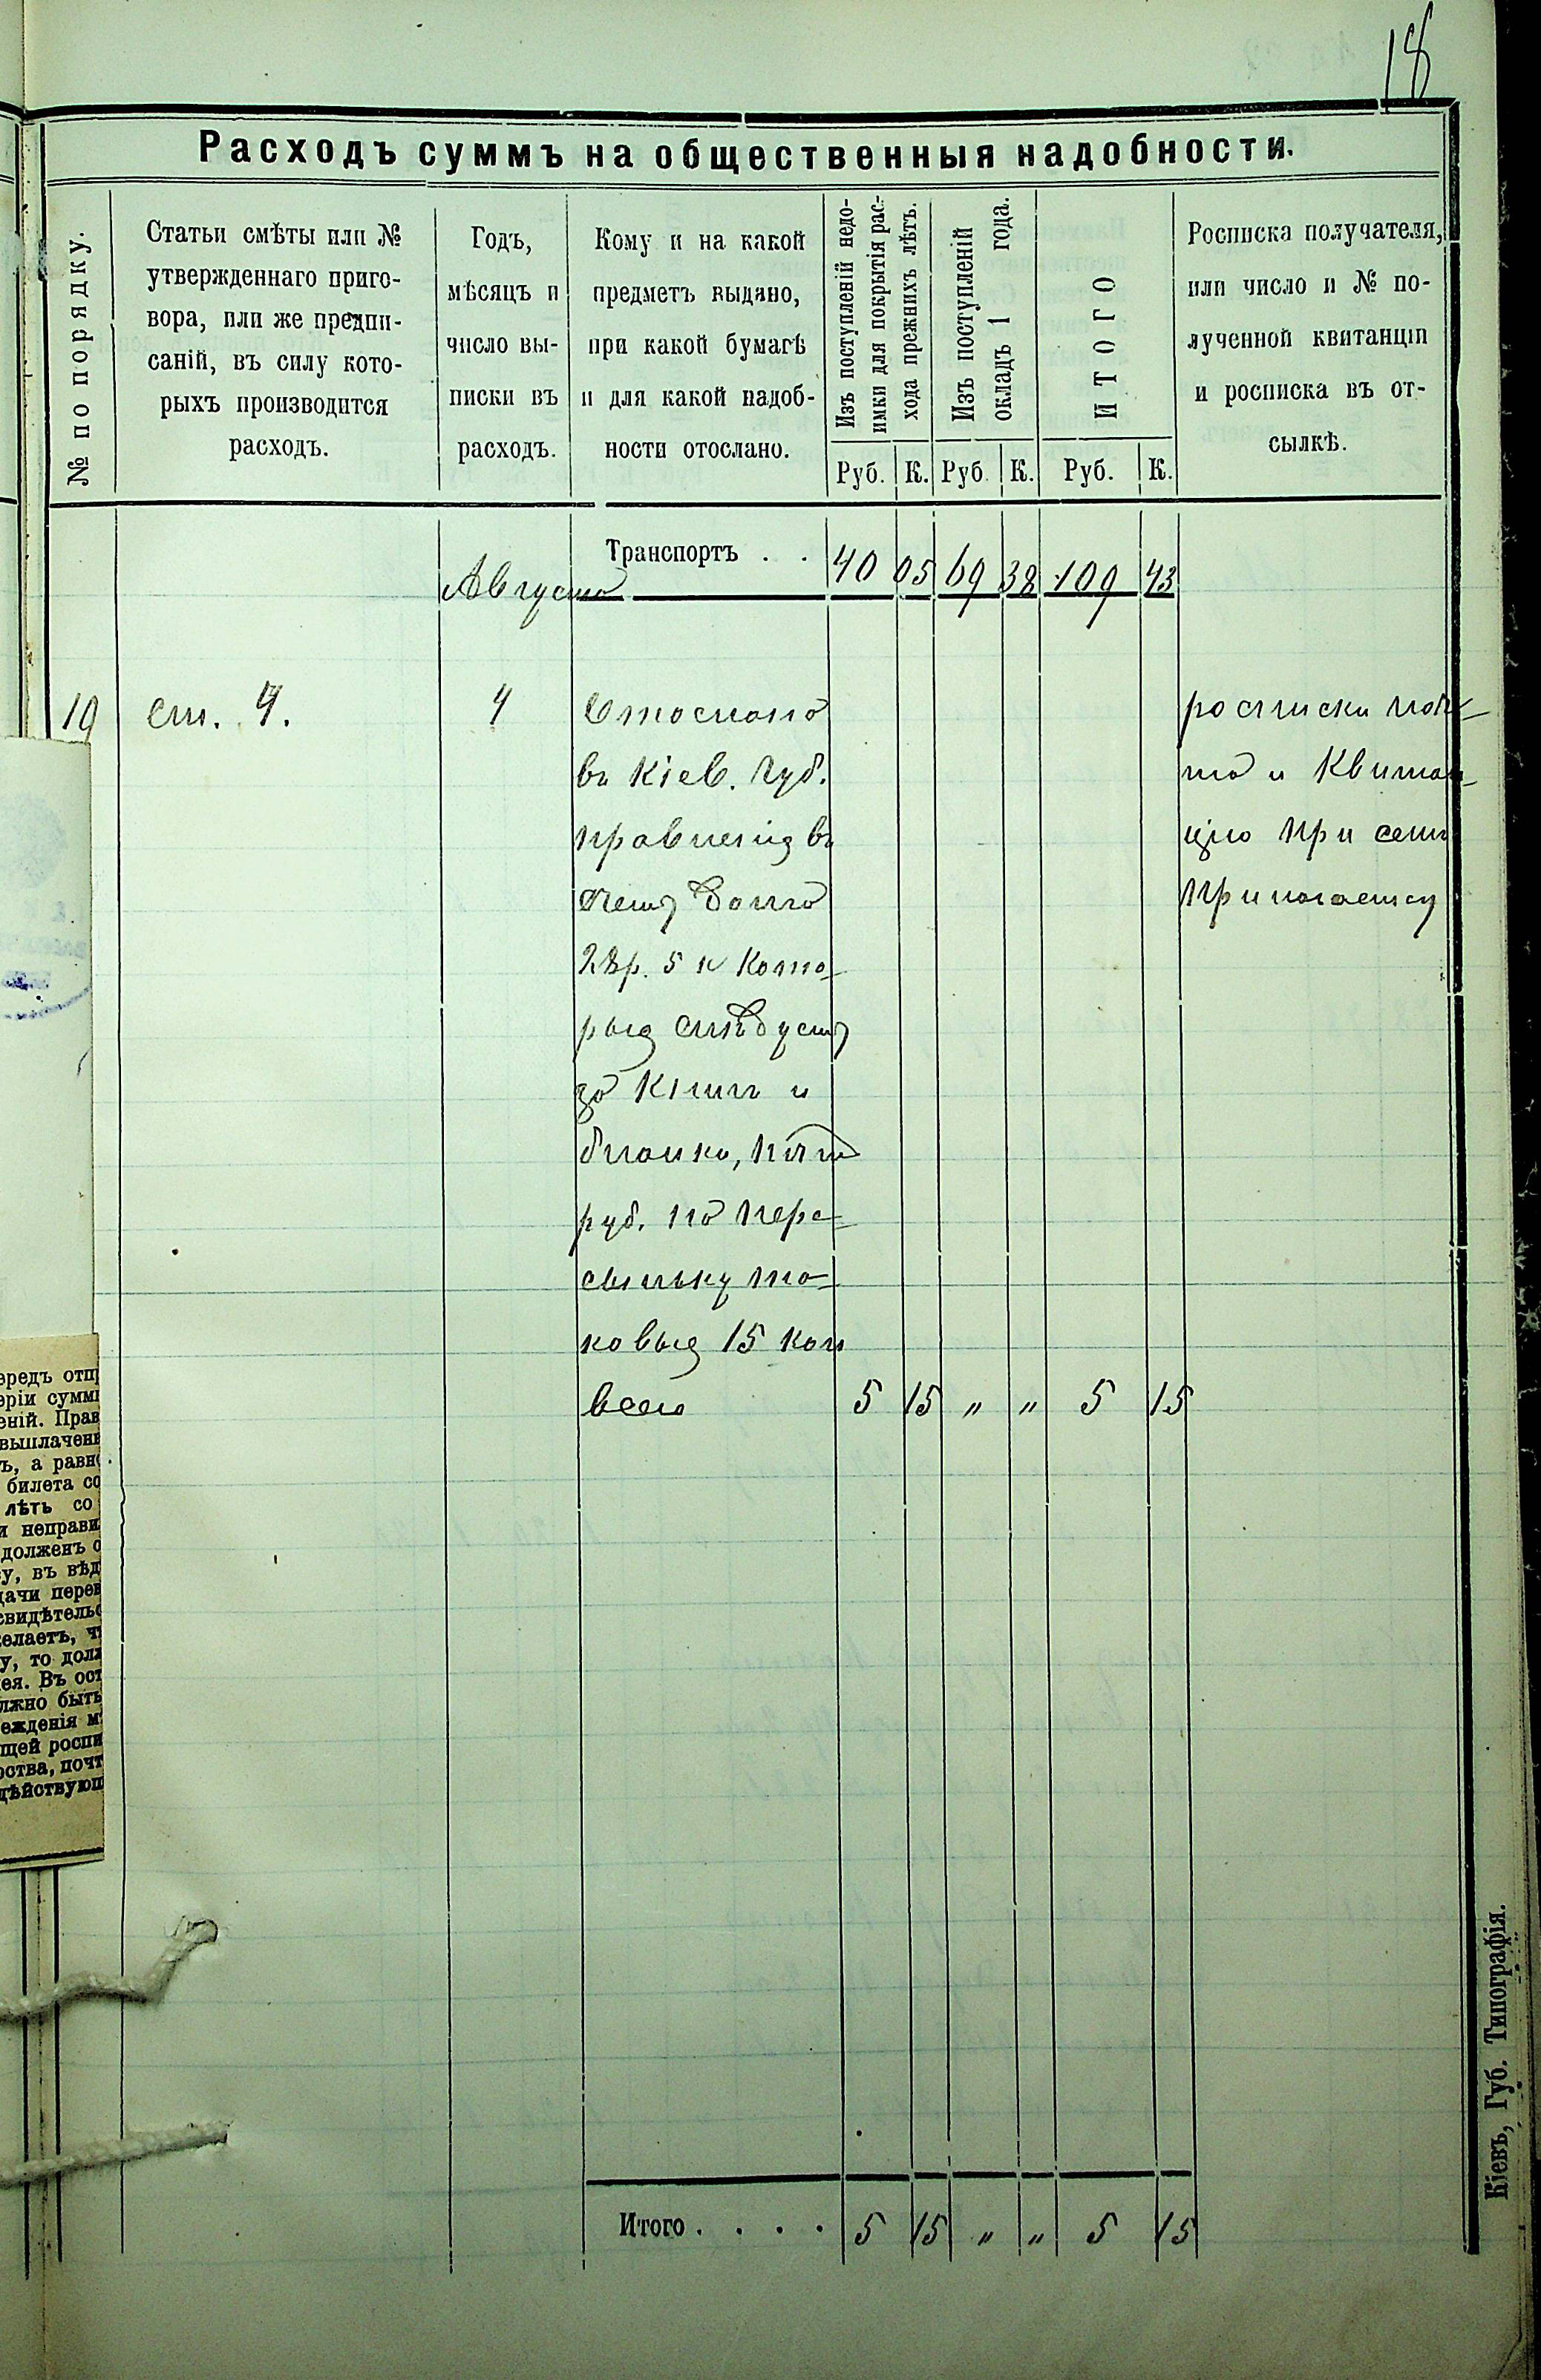 18
Расходъ суммъ на общественныя надобности.
№ по порядку.
Статьи смѣты или №
утвержденнаго приго-
вора, или же предпи-
саній, въ силу кото-
рыхъ производится
расходъ.
Годъ,
мѣсяцъ и
число вы-
писки въ
расходъ.
Кому и на какой
предметъ выдано,
при какой бумагѣ
и для какой надоб-
ности отослано.
Изъ поступленій недо-
имки для покрытія рас-
хода прежнихъ лѣтъ.
Изъ поступленій
окладъ 1 года.
ИТОГО
Росписка получателя,
или число и № по-
лученной квитанціи
и росписка въ от-
сылкѣ.
Руб. К. Руб. К. Руб. К.
Транспортъ . . 40 05 69 38 109 43
Августа
19 ст. 4. 4 Отослано
въ Кіев. Губ.
правленія въ
счетъ долга
28р. 5 к кото-
рыя слѣдуетъ
за книги и
бланки, пять
руб. на пере-
сылку та-
ковыя 15 коп
всего 5 15 „ „ 5 15
росписки
та и Квитан-
цію при семъ
прилагается
Итого . . . . 5 15 „ „ 5 15
Кіевъ, Губ. Типографія.
ередъ отп
еріи сумм
еній. Прав
выплачен
ъ, а равн
билета со
лѣтъ со
и неправи
долженъ о
у, въ вѣд
дачи перев
свидѣтельс
елаетъ, ч
у, то дол
ея. Въ ост
лжно быть
ежденія м
щей роспи
ства, почт
дѣйствующ